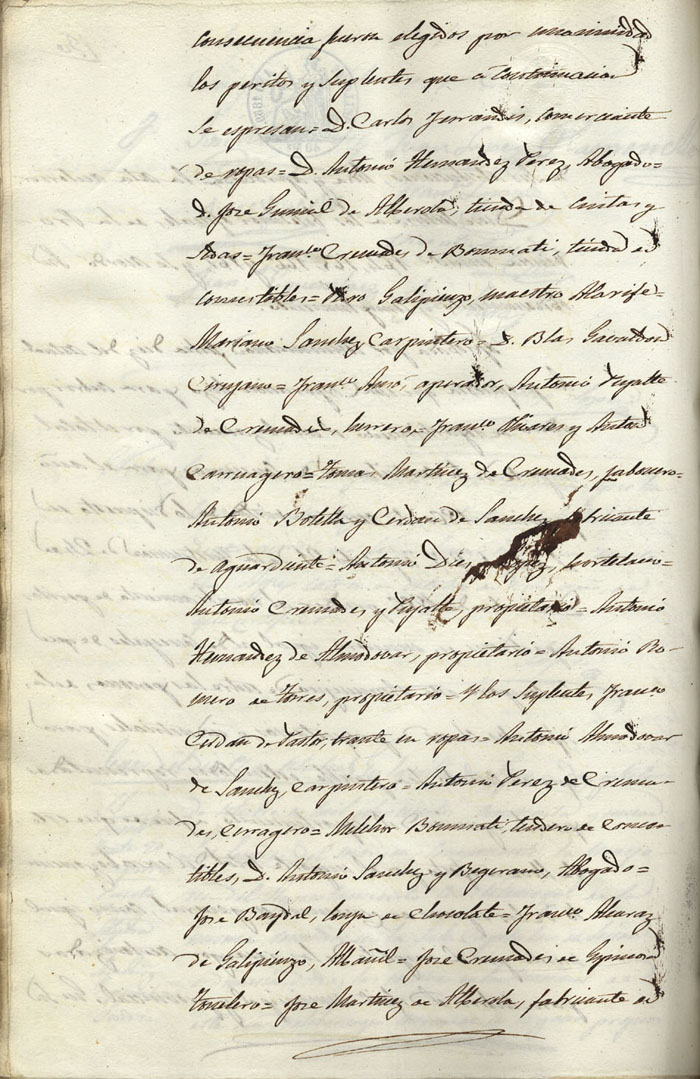 consecuencia fueron elegidos por unanimidad
los peritos y suplentes que a continuacion
se espresan = D. Carlos Ferrandis, Comerciante
de ropas = D. Antonio Hernandez Perez, Abogado =
D. Jose Gumiel de Alberola, tienda de Cintas y
Sedas = Franco. Cremades de Bonmati, tienda de
Comestibles = Galipienzo, maestro Alarife =
Mariano Sanchez Carpintero = D. Blas
Cirujano = Franco. Amó, aperador, Antonio
de Cremades, herrero = Franco. Olivares y
Carruagero = Tomas Martinez de Cremades, jabonero =
Antonio Botella y Cerdan de Sanchez, fabricante
de Aguardiente = Antonio Dies hortelano =
Antonio Cremades y propietario = Antonio
Hernandez de Almodovar, propietario = Antonio Ro-
mero de Torres, propietario = Y los Suplentes, Franco.
Cerdan de Pastor, trante en ropas = Antonio Almodovar
de Sanchez Carpintero = Antonio Perez de Crema-
des, Cerragero = Melchor Bonmati, tendero de Comes-
tibles, D. Antonio Sanchez y Begerano, Abogado =
Jose Baydal, lonja de Chocolate = Franco. Alcaraz
de Galipienzo, Albañil = Jose Cremades de Espinosa
tonelero = Jose Martinez de Alberola, fabricante de